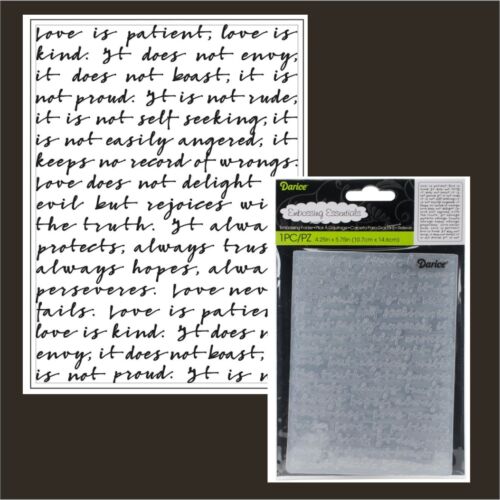 Love is patient, love is
kind. It does not envy,
it does not boast, it is
not proud. It is not rude,
it is not self seeking, it
is not easily angered, it
keeps no record of wrongs.
Love does not delight
evil but rejoices wi
the truth. It alwa
protects, always trus
always hopes, alwa
perseveres. Love nev
fails. Love is patien
love is kind. It does n
envy, it does not boast,
is not proud. It is n
Darice
Embossing Essentials
1PC/PZ 4.25in x 5.75in (10.7cm x 14.6cm)
Darice